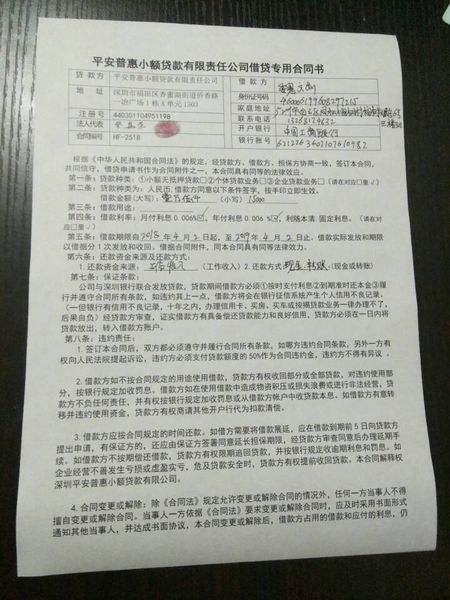 平安普惠小额贷款有限责任公司借贷专用合同书
贷 款 方 平安普惠小额贷款有限责任公司 借 款 方
地 址 深圳市福田区香蜜湖街道侨香路一冶广场1栋A单元1303 身份证号码
家庭地址
注册号 440301104951198 联系电话
法人代表 开户银行 中国工商银行
合同编号 HF-2518 银行账号
根据《中华人民共和国合同法》的规定，经贷款方、借款方、担保方协商一致，签订本合同，
共同信守，借贷申请书作为合同附件之一，本合同具有同等的法律效应。
第一条：贷款种类：①小额无抵押贷款□②个体贷款业务□③企业贷款业务□（请在对应□里√）
第二条：贷款种类为：人民币，借款方同意以下条件签字，按手印立即生效。
借款金额（大写） 壹万伍仟 （小写） 15000
第三条：借款用途：
第四条：借款利率：月付利息0.0065□，年付利息0.0065□，利随本清 固定利息。（请在对
应□里√）
第五条：借款期限自2018年4月2日起，至2019年4月2日止。借款实际发放和期限
以借据分1次发放和收回。借据合同附件，同本合同具有同等法律效力。
第六条：还款资金来源及还款方式：
1.还款资金来源： （工作收入）2.还款方式 现金转账（现金或转账）
第七条：保证条款：
公司与深圳银行联合发放贷款，贷款期间借款方必须①按时支付利息②到期准时还本金③履
行并遵守合同所有条款，如违约其上一点，借款方将会在银行征信系统产生个人信用不良记录，
（一但银行有信用不良记录，十年之内，办理信用卡、买房、买车或按揭贷款业务一律办理不了，
后果自负）经贷款方审查，证实借款方有具备偿还贷款能力和良好信用，贷款方必须在一日内将
贷款放出，转入借款方账户。
第八条：违约责任：
1.签订本合同后，双方都必须遵守并履行合同所有条款，如哪方违约合同条款，另外一方有
权向人民法院提起诉讼，违约方必须支付贷款额度的50%作为合同违约金，违约方不得有异议 。
2.借款方如不按合同规定的用途使用借款，贷款方有权收回部分或全部贷款，对违约使用部
分，按银行规定加收罚息。借款方如在使用借款中造成物资积压或损失浪费或进行非法经营，贷款
方不负任何责任，并有权按银行规定加收罚息或从借款方帐户中收贷款本息。如借款方有意转
移并违约使用资金，贷款方有权商请其他开户行代为扣款清偿。
3.借款方应按合同规定的时间还款。如借方需要将借款展延，应在借款到期前5日向贷款方
提出申请，有保证方的，还应由保证方签署同意延长担保期限，经贷款方审查同意后办理延期手
续。如借款方不按期偿还借款，贷款方有权限期追回贷款，并按银行规定收逾期利息和罚息。如
企业经营不善发生亏损或虚盈实亏，危及贷款安全时，贷款方有权提前收回贷款。本合同解释权
深圳平安普惠小额贷款有限公司。
4.合同变更和解除：除《合同法》规定允许变更或解除合同的情况外，任何一方当事人不得
擅自变更或解除合同。当事人一方依据《合同法》要求变更或解除合同时，应及时采用书面形式
通知其他当事人，并达成书面协议，本合同变更或解除后，借款方占用的借款和应付的利息，仍